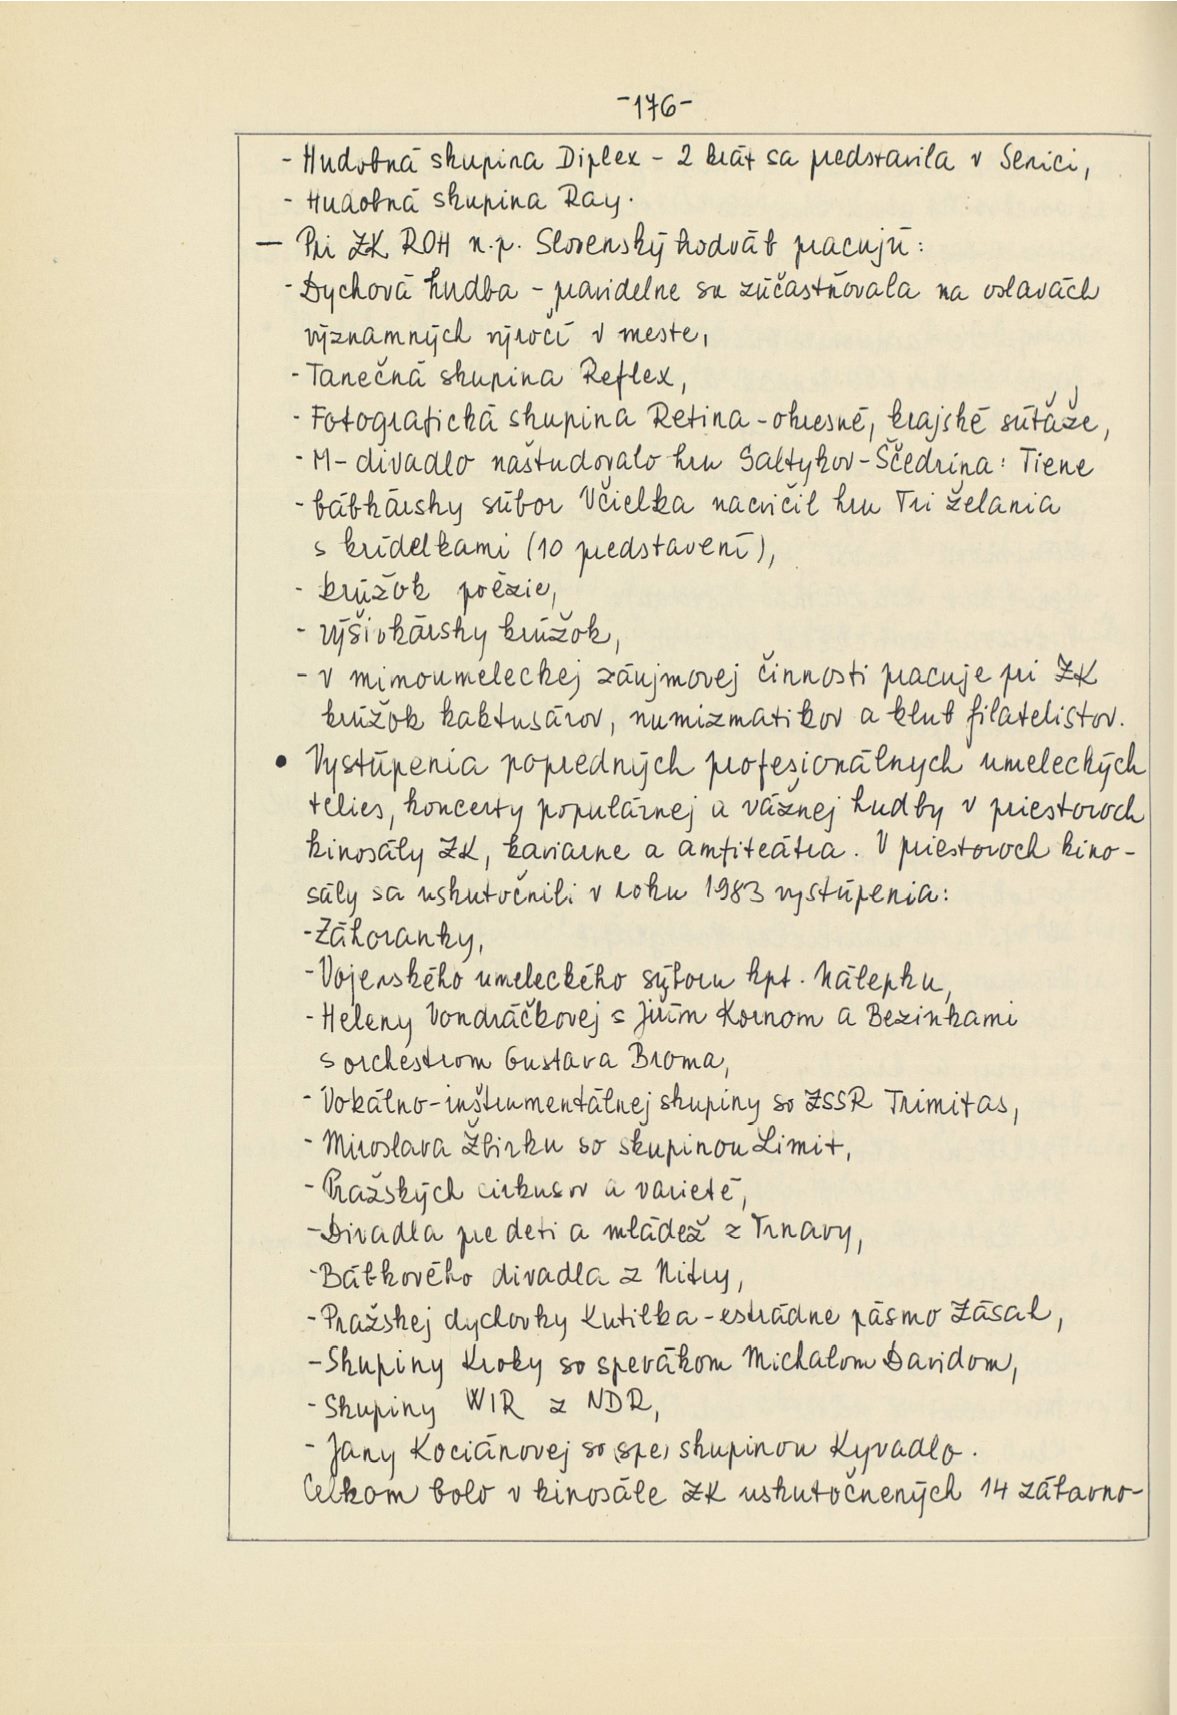 -176-
- Hudobná skupina Diplex - 2 krát sa predstavila v Senici,
- Hudobná skupina Ray.
— Pri ZK ROH n.p. Slovenský hodváb pracujú:
- Dychová hudba - pravidelne sa zúčastňovala na oslavách
významných výročí v meste,
- Tanečná skupina Reflex,
- Fotografická skupina Retina - okresné, krajské súťaže,
- M-divadlo naštudovalo hru Saltykov-Ščedrina: Tiene
- bábkársky súbor Včielka nacvičil hru Tri želania
s krídelkami (10 predstavení),
- krúžok poézie,
- výšivkársky krúžok,
- v mimoumeleckej záujmovej činnosti pracuje pri ZK
krúžok kaktusárov, numizmatikov a klub filatelistov.
• Vystúpenia popredných profesionálnych umeleckých
telies, koncerty populárnej a vážnej hudby v priestoroch
kinosály ZK, kaviarne a amfiteátra. V priestoroch kino-
sály sa uskutočnili v roku 1983 vystúpenia:
- Záhoranky,
- Vojenského umeleckého súboru kpt. Nálepku,
- Heleny Vondráčkovej s Jiřím Kornom a Bezinkami
s orchestrom Gustava Broma,
- Vokálno-inštrumentálnej skupiny so ZSSR Trimitas,
- Miroslava Žbirku so skupinou Limit,
- Pražských cirkusov a varieté,
- Divadla pre deti a mládež z Trnavy,
- Bábkového divadla z Nitry,
- Pražskej dychovky Kutilka - estrádne pásmo Zásah,
- Skupiny Kroky so spevákom Michalom Davidom,
- Skupiny WIR z NDR,
- Jany Kociánovej so (spe) skupinou Kyvadlo.
Celkom bolo v kinosále ZK uskutočnených 14 zábavno-